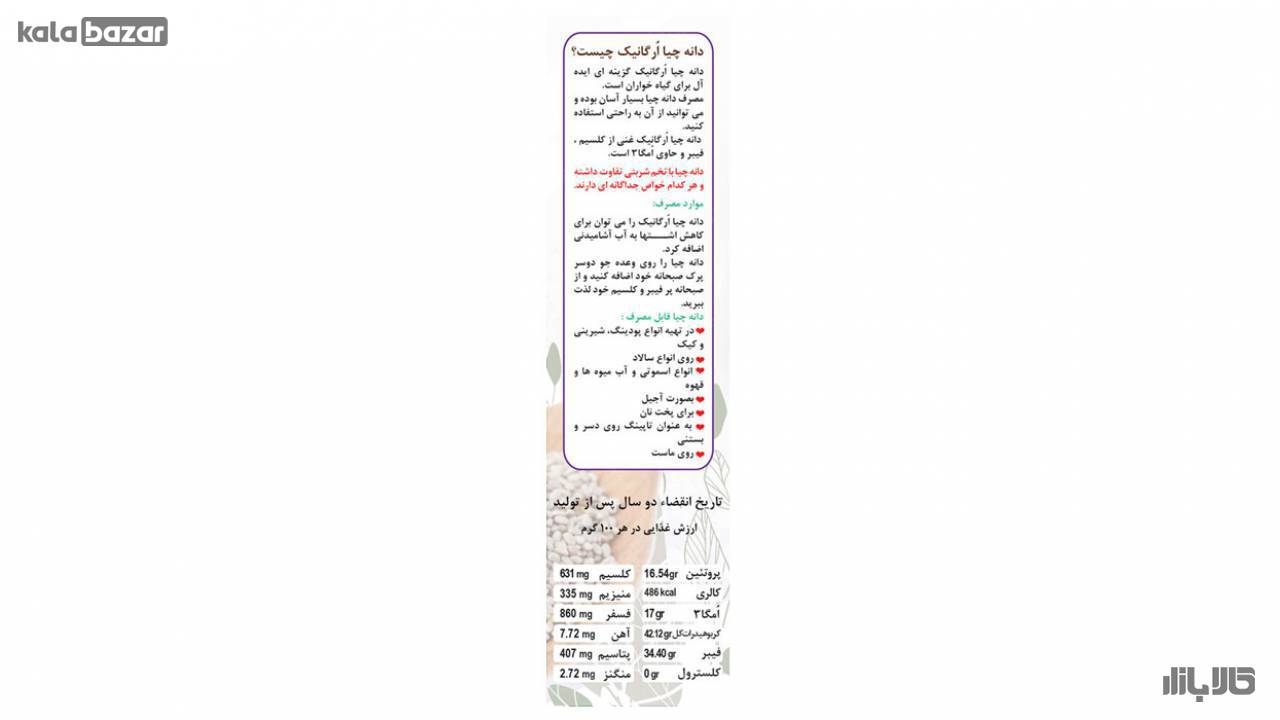 kala bazar
دانه چیا اُرگانیک چیست؟
دانه چیا اُرگانیک گزینه ای ایده
آل برای گیاه خواران است.
مصرف دانه چیا بسیار آسان بوده و
می توانید از آن به راحتی استفاده
کنید.
دانه چیا اُرگانیک غنی از کلسیم ،
فیبر و حاوی اُمگا۳ است.
دانه چیا با تخم شربتی تفاوت داشته
و هر کدام خواص جداگانه ای دارند.
موارد مصرف:
دانه چیا اُرگانیک را می توان برای
کاهش اشـــتها به آب آشامیدنی
اضافه کرد.
دانه چیا را روی وعده جو دوسر
پرک صبحانه خود اضافه کنید و از
صبحانه پر فیبر و کلسیم خود لذت
ببرید.
دانه چیا قابل مصرف :
در تهیه انواع پودینگ، شیرینی
و کیک
روی انواع سالاد
انواع اسموتی و آب میوه ها و
قهوه
بصورت آجیل
برای پخت نان
به عنوان تاپینگ روی دسر و
بستنی
روی ماست
تاریخ انقضاء دو سال پس از تولید
ارزش غذایی در هر ۱۰۰ گرم
پروتئین 16.54gr کلسیم 631 mg
کالری 486 kcal منیزیم 335 mg
اُمگا۳ 17 gr فسفر 860 mg
کربوهیدرات کل 42.12 gr آهن 7.72 mg
فیبر 34.40 gr پتاسیم 407 mg
کلسترول 0 gr منگنز 2.72 mg
کالابازار